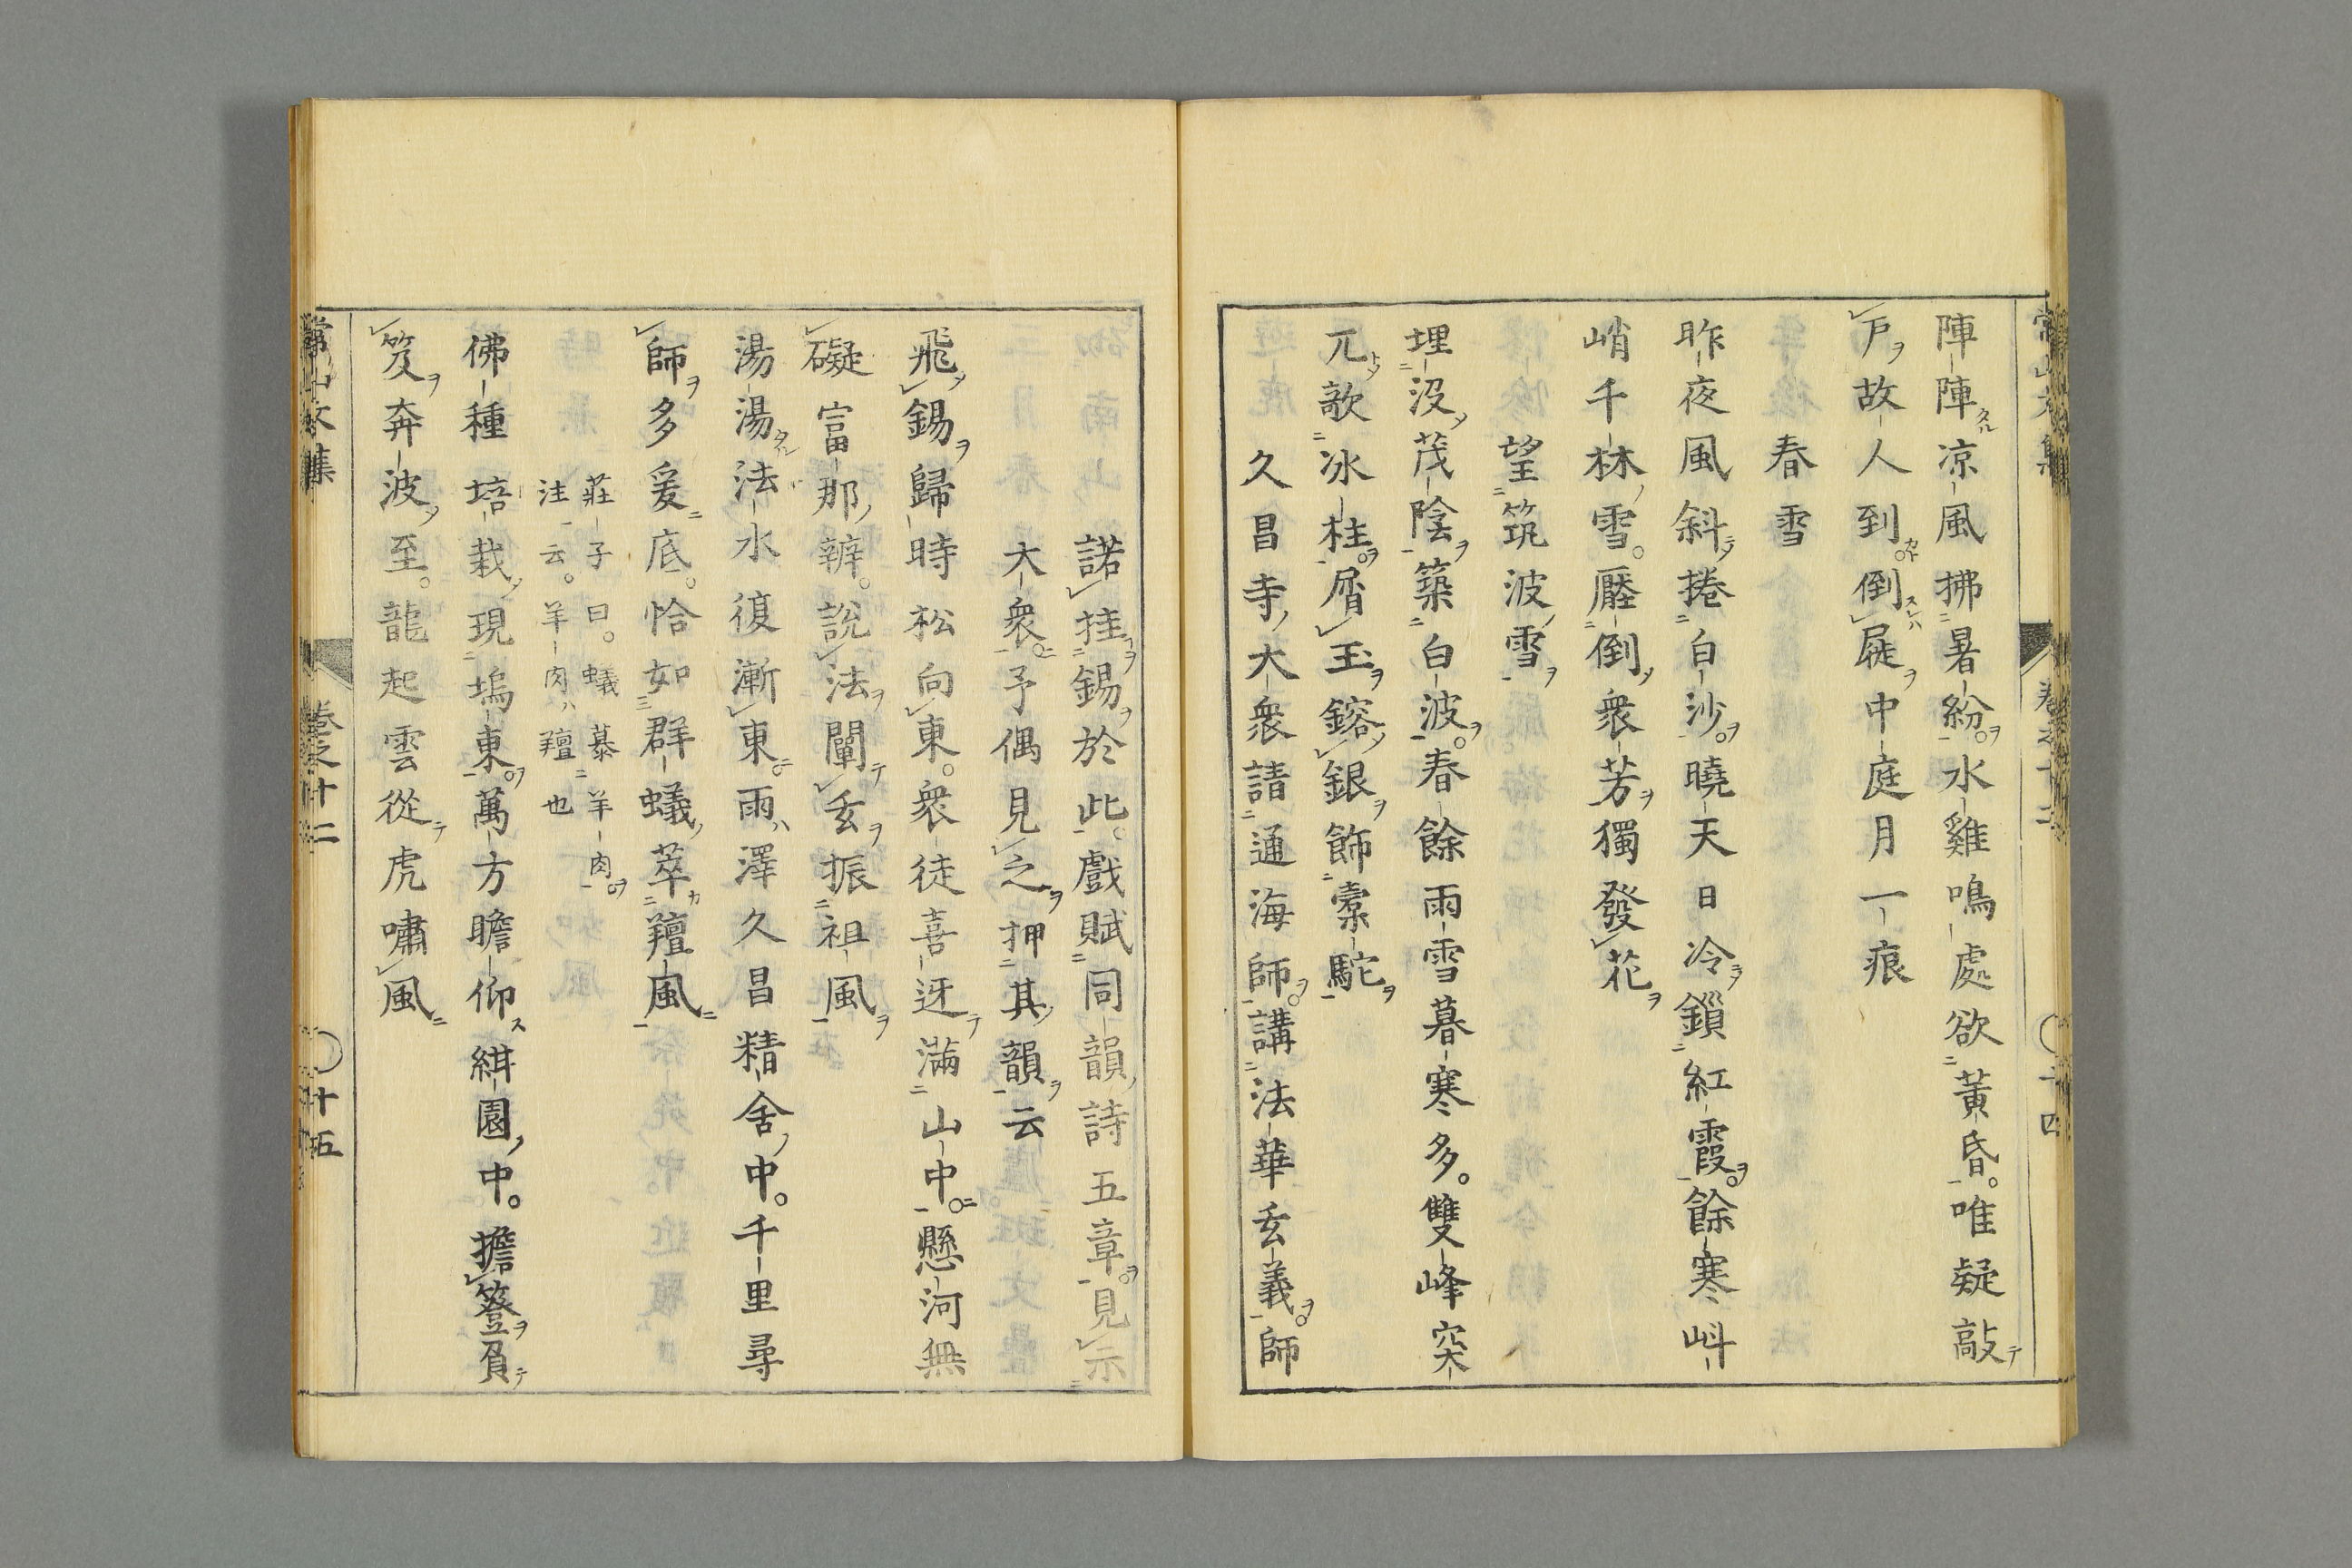 陣陣凉風拂暑紛水雞鳴處欲黃昏唯疑敲
戸故人到倒屣中庭月一痕
春雪
昨夜風斜捲白沙曉天日冷鎻紅霞餘寒㪷
峭千林雪壓倒衆芳獨發花
望筑波雪
埋没茂陰築白波春餘雨雪暮寒多雙峰突
兀歌冰柱屑玉鎔銀飾橐駝
久昌寺大衆請通海師講法華玄義師
諾挂錫於此戲賦同韻詩五章見示
大衆予偶見之押其韻云
飛錫歸時松向東衆徒喜迓滿山中懸河無
礙富那辨說法闡玄振祖風
湯湯法水復漸東雨澤久昌精舍中千里尋
師多爰底恰如群蟻萃羶風
莊子曰蟻慕羊肉
注云羊肉羶也
佛種培栽現塢東萬方瞻仰紺園中擔簦負
笈奔波至龍起雲從虎嘯風
常山文集
卷之十二
十五